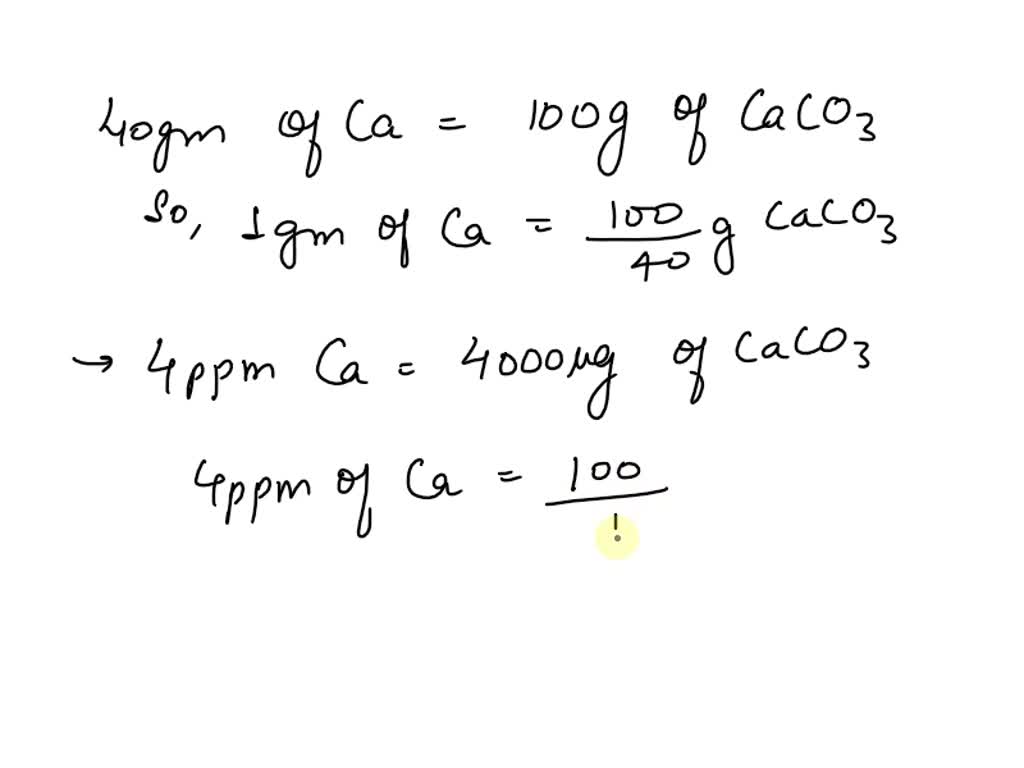 40gm of Ca = 100g of CaCO3
So, 1gm of Ca = 100/40 g CaCO3
→ 4ppm Ca = 4000μg of CaCO3
4ppm of Ca = 100/1